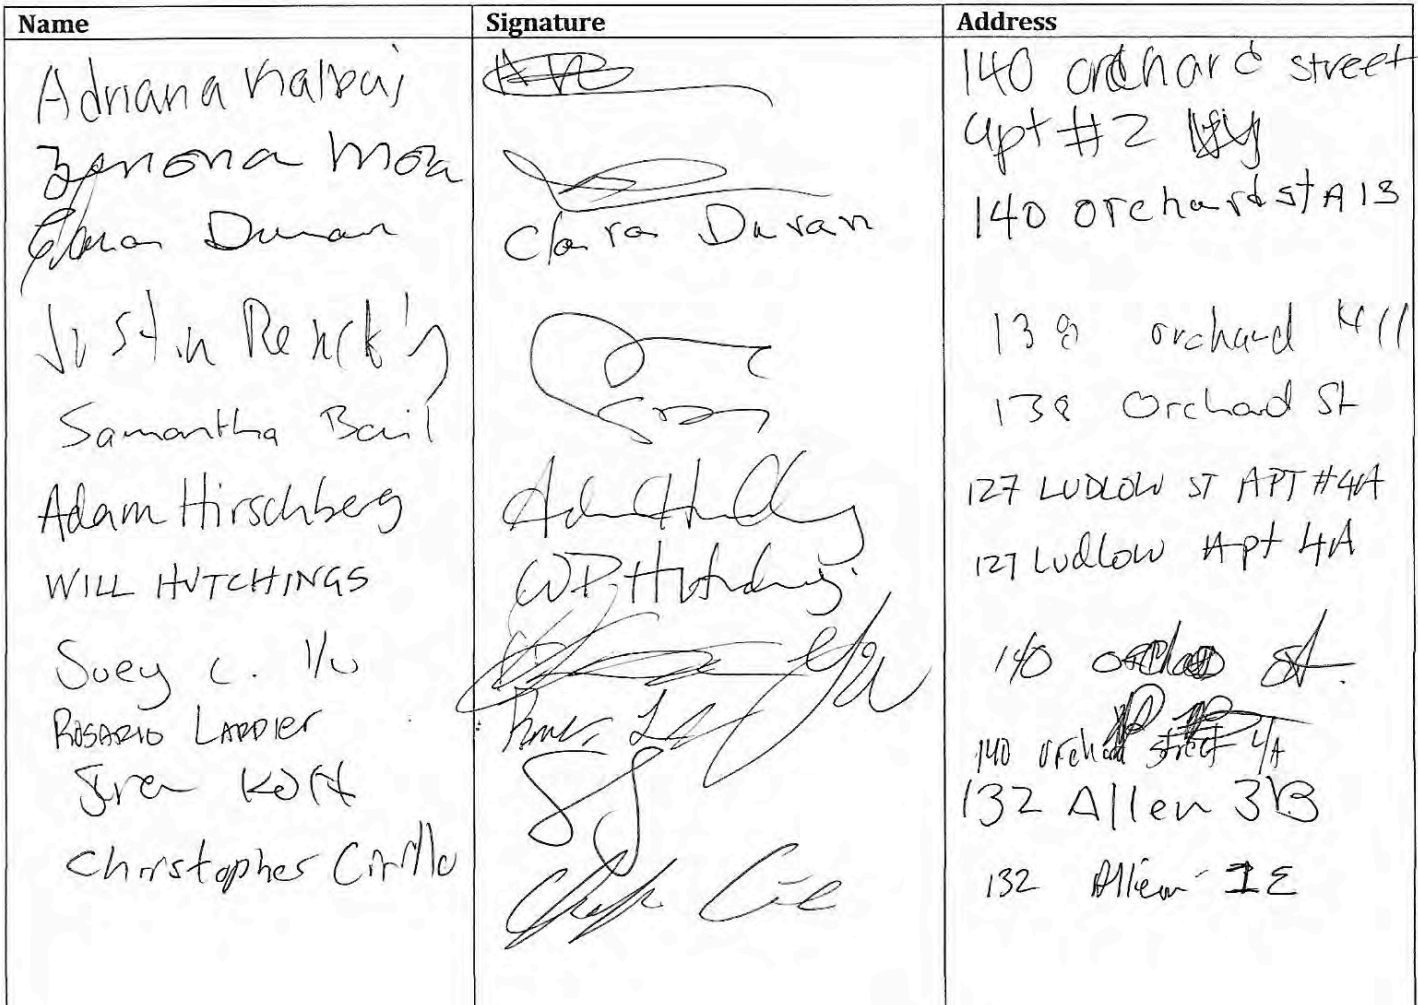 Name Signature Address
Adriana 140 orchard street
apt #2
Zenona
Clara Duran Clara Duran 140 orchard st A 13
Justin 138 orchard # 11
Samantha Bail 138 Orchard St
Adam Hirschberg 127 LUDLOW ST APT #4A
WILL HUTCHINGS WP Hutchings 127 Ludlow Apt 4A
Suey C. Yu Yu 140 st.
ROSARIO LARDIER 140 orchard street 4A
132 Allen 3B
Christopher Cirillo 132 Allen 1E